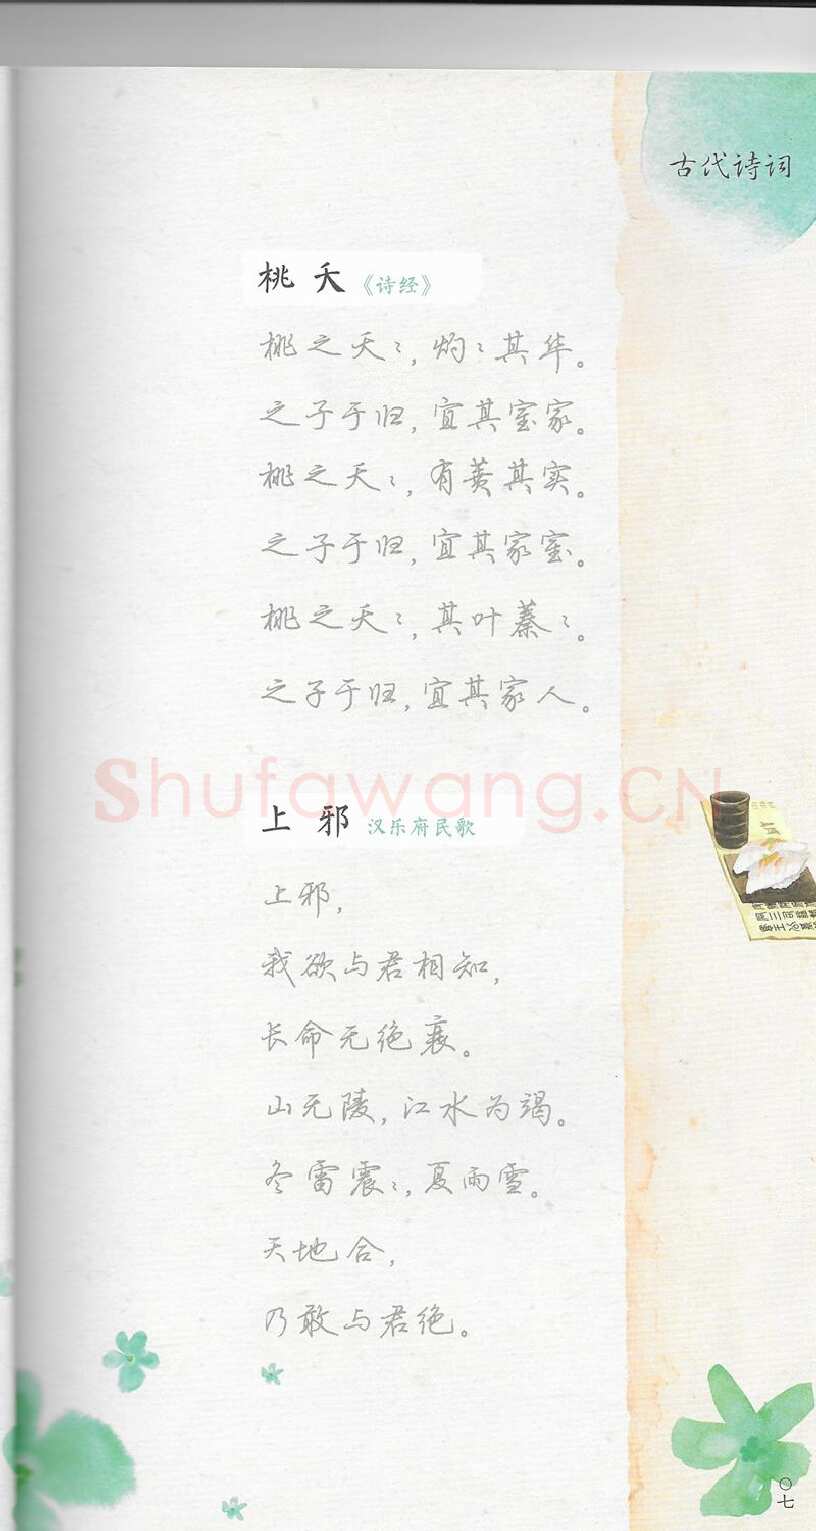 古代诗词
桃夭《诗经》
桃之夭〻,灼〻其华。
之子于归,宜其室家。
桃之夭〻,有蕡其实。
之子于归,宜其家室。
桃之夭〻,其叶蓁〻。
之子于归,宜其家人。
Shufawang.CN
上邪 汉乐府民歌
上邪,
我欲与君相知,
长命无绝衰。
山无陵,江水为竭。
冬雷震〻,夏雨雪。
天地合,
乃敢与君绝。
〇七